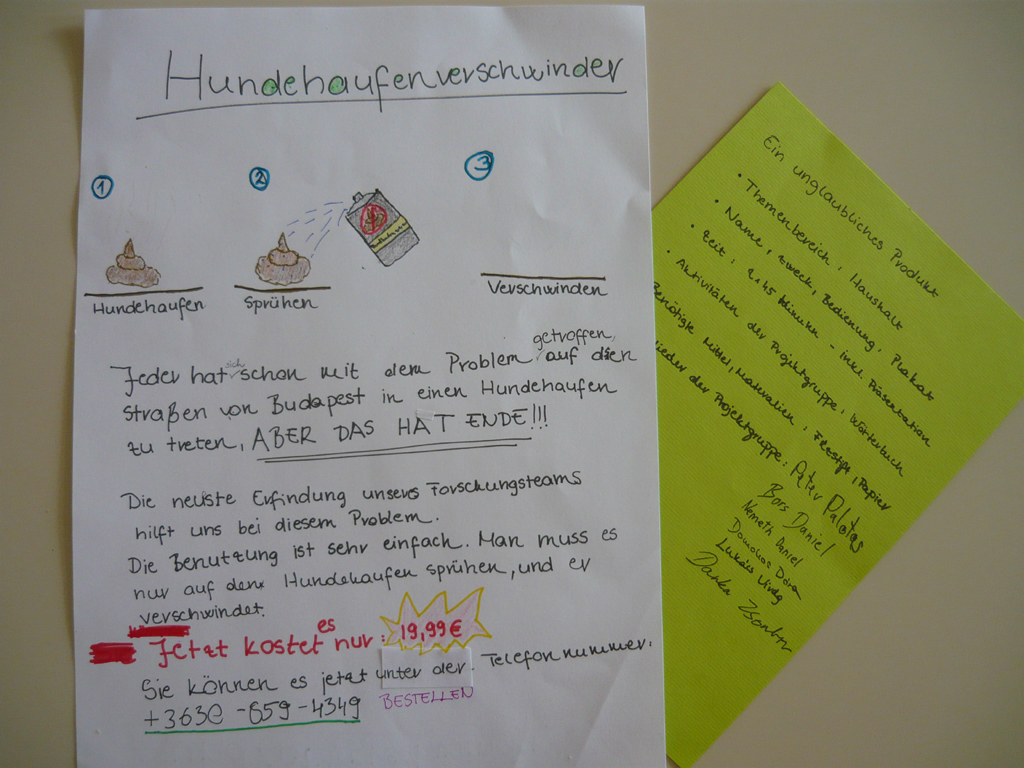 Hundehaufenverschwinder
1
2
3
Hundehaufen
Sprühen
Verschwinden
Jeder hat sich schon mit dem Problem getroffen, auf den
straßen von Budapest in einen Hundehaufen
zu treten, ABER DAS HAT ENDE!!!
Die neuste Erfindung unseres Forschungsteams
hilft uns bei diesem Problem.
Die Benutzung ist sehr einfach. Man muss es
nur auf den Hundehaufen sprühen, und er
verschwindet.
Jetzt kostet es nur: 19,99 €
Sie können es jetzt unter der Telefonnummer:
+3630-659-4349 BESTELLEN
Ein unglaubliches Produkt
• Themenbereich: Haushalt
• Name, Zweck, Bedienung, Plakat
• Zeit: 2x45 Minuten - inkl. Präsentation
• Aktivitäten der Projektgruppe: Wörterbuch
Benötigte Mittel, Materialien: Papier
der Projektgruppe: Péter Palotás
Bors Dániel
Németh Dániel
Domokos Dóra
Lukács Virág
Danka Zsombor